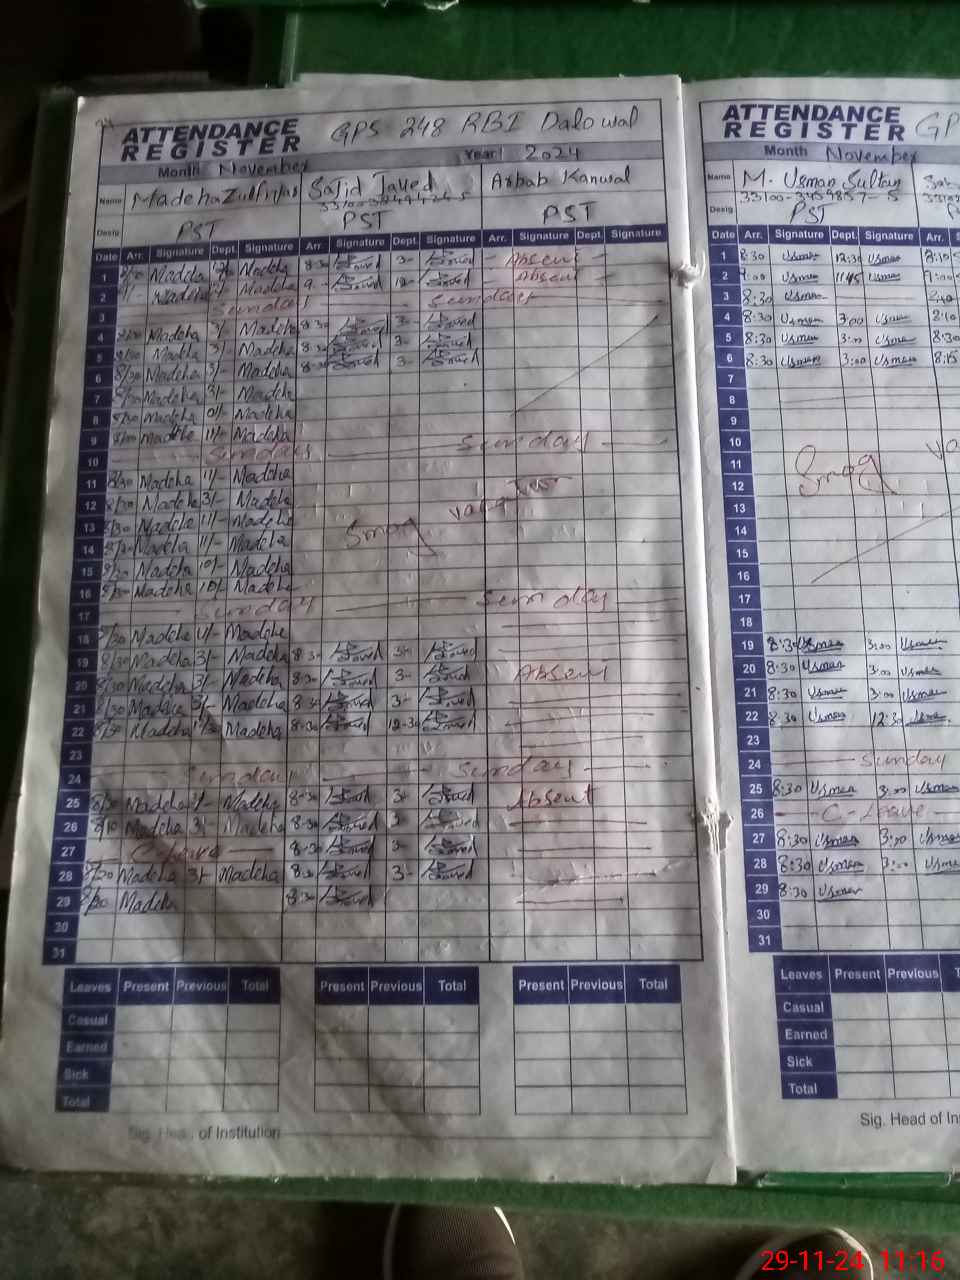 24
ATTENDANCE REGISTER GPS 248 RBI Dalowal
Month November Year 2024
Name Madeha Zulfiqar Sajid Javed Arbab Kanwal
Desig PST PST PST
Date Arr. Signature Dept. Signature Arr. Signature Dept. Signature Arr. Signature Dept. Signature
1 Madeha Madeha 8:30 3- Absent
2 Madeha Madeha 9- 12- Absent
3 Sunday Sunday
4 8/30 Madeha 3/- Madeha 8:30 3-
5 8/30 Madeha 3/- Madeha 8:30 3-
6 8/30 Madeha 3/- Madeha 8:30 3-
7 8/30 Madeha 3/- Madeha
8 8/30 Madeha Madeha
9 Madeha 11/- Madeha
10 Sunday Sunday
11 8/30 Madeha 11/- Madeha
12 8/30 Madeha 3/- Madeha Smog vacation
13 8/30 Madeha 11/- Madeha
14 8/30 Madeha 11/- Madeha
15 8/30 Madeha 10/- Madeha
16 8/30 Madeha 10/- Madeha
17 Sunday Sunday
18 8/30 Madeha 11/- Madeha
19 8/30 Madeha 3/- Madeha 8:30 3-
20 8/30 Madeha 3/- Madeha 8:30 3- Absent
21 8/30 Madeha 3/- Madeha 8:30 3-
22 8/30 Madeha Madeha 8:30 12:30
23
24 Sunday Sunday
25 8/30 Madeha 3/- Madeha 8:30 3- Absent
26 8/10 Madeha 3/- Madeha 8:30 3-
27 C-Leave 8:30 3-
28 8/30 Madeha 3/- Madeha 8:30 3-
29 8/30 Madeha 8:30
30
31
Leaves Present Previous Total Present Previous Total Present Previous Total
Casual
Earned
Sick
Total
Sig. Head of Institution
ATTENDANCE REGISTER GP
Month November
Name M. Usman Sultan
33100-3459857-5
Desig PST
Date Arr. Signature Dept. Signature Arr.
1 8:30 Usman 12:30 Usman 8:10
2 9:00 Usman 11:45 Usman 9:00
3 8:30 Usman
4 8:30 Usman 3:00 Usman 8:10
5 8:30 Usman 3:00 Usman 8:30
6 8:30 Usman 3:00 Usman 8:15
7
8
9
10
11 Smog va
12
13
14
15
16
17
18
19 8:30 Usman 3:00 Usman
20 8:30 Usman 3:00 Usman
21 8:30 Usman 3:00 Usman
22 8:30 Usman 12:30 Usman
23
24 Sunday
25 8:30 Usman 3:00 Usman
26 C-Leave
27 8:30 Usman 3:00 Usman
28 8:30 Usman 3:00 Usman
29 8:30 Usman
30
31
Leaves Present Previous T
Casual
Earned
Sick
Total
Sig. Head of Ins
29-11-24 11:16